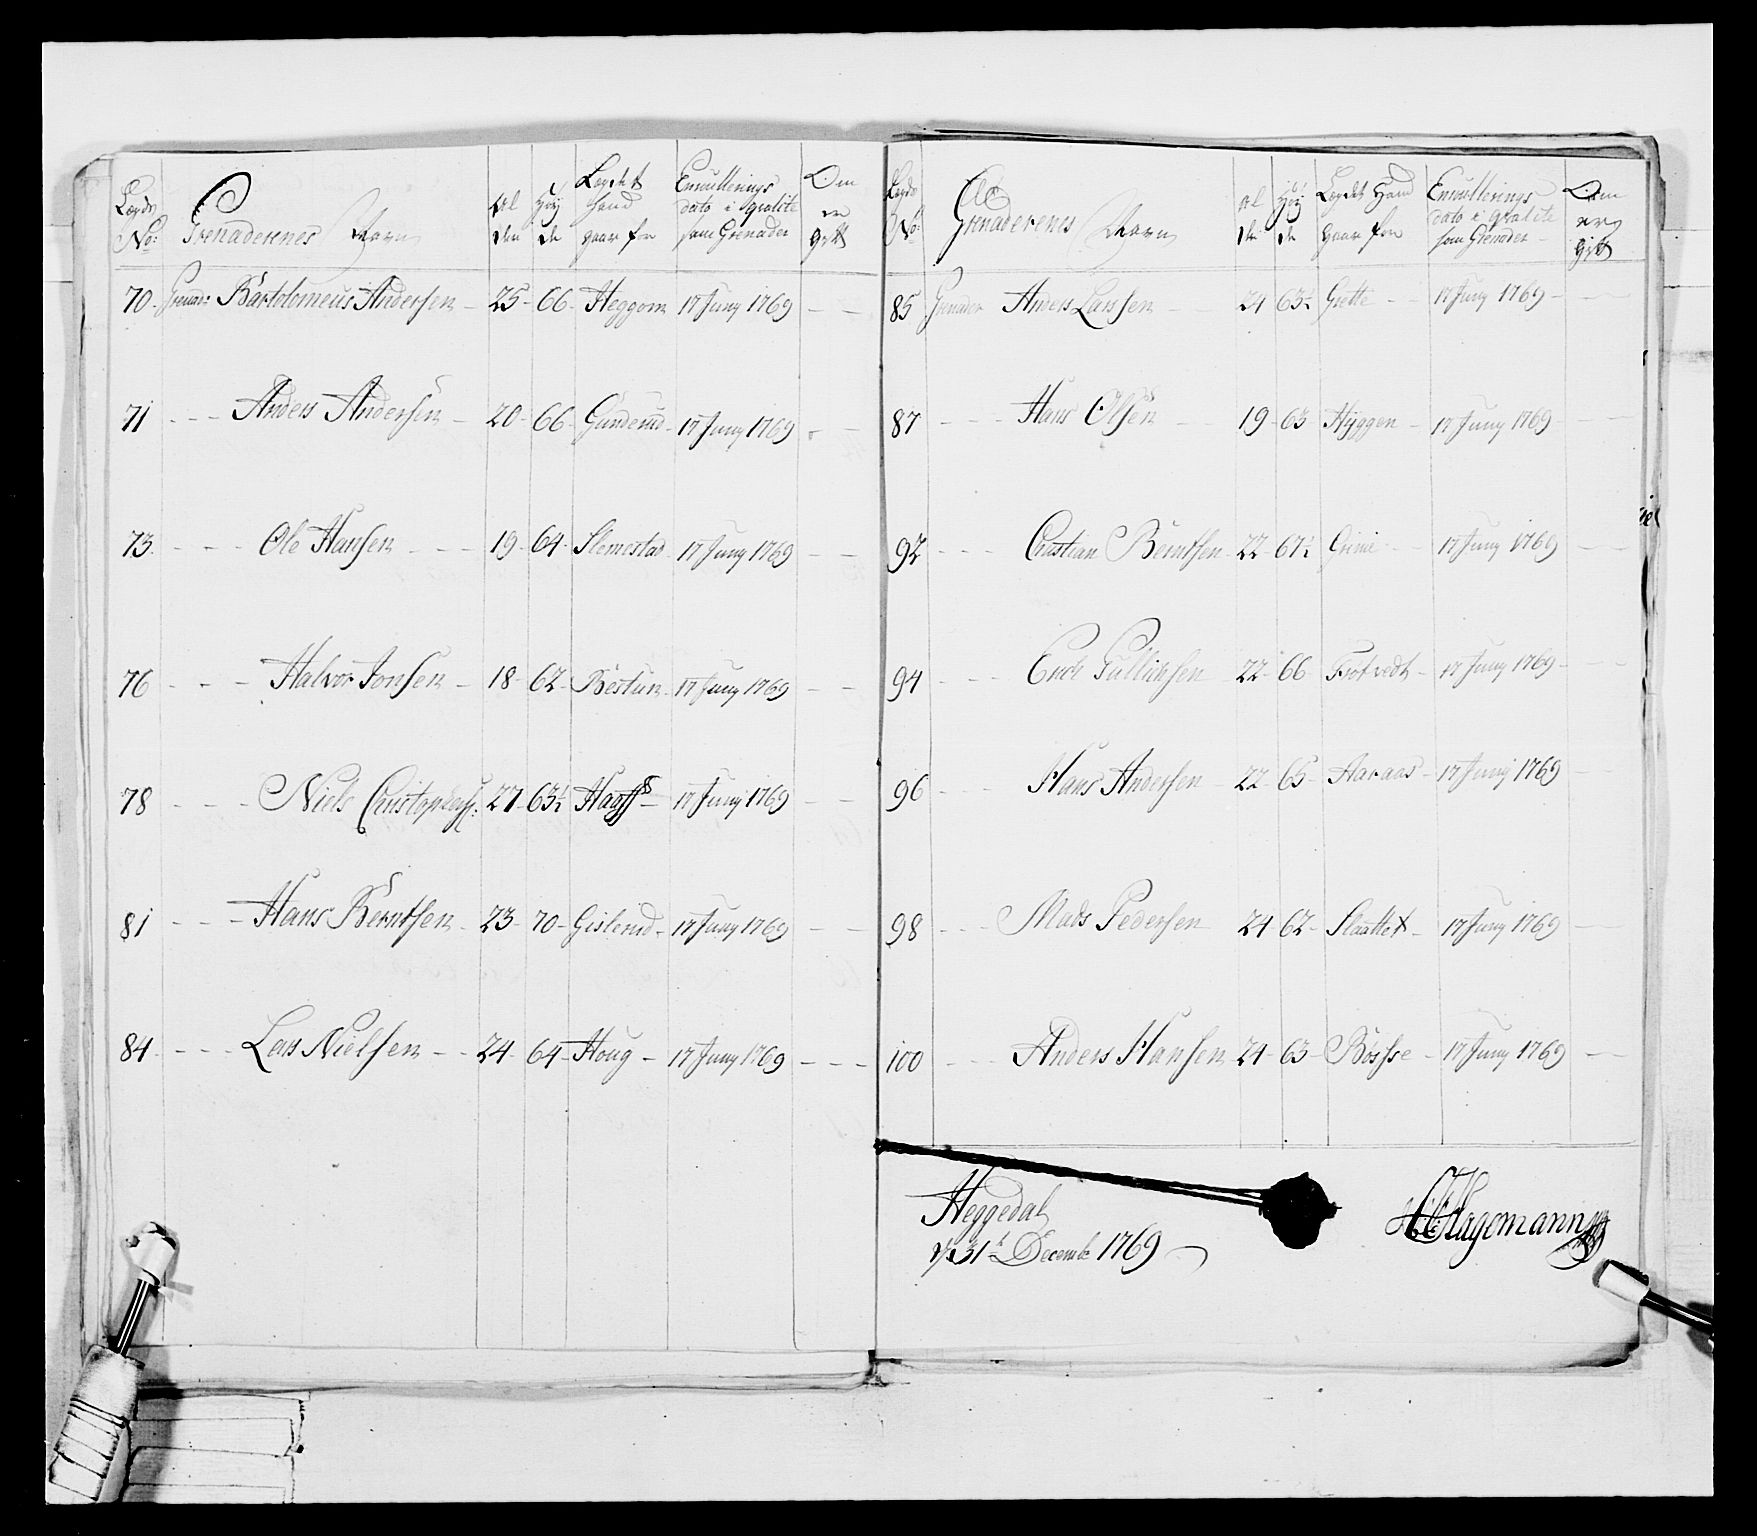 Lægds No: Grenaderenes Navn Alder Høyde Lægdet hand gaar for Enrullerings dato i qvalite som Grenader Om er gift
70 Grenadr: Bartolomeus Andersen 25 66 Heggom 17 Juny 1769
71 Anders Andersen 20 66 Gunderud 17 Juny 1769
73 Ole Hansen 19 64 Slemestad 17 Juny 1769
76 Halvor Jonsen 18 62 Bestum 17 Juny 1769
78 Niels Christophers: 27 63½ 17 Juny 1769
81 Hans Berntsen 23 70 Gislerud 17 Juny 1769
84 Lars Nielsen 24 64 Houg 17 Juny 1769
Lægds No: Grenaderenes Navn Alder Høyde Lægdet Hand gaar for Enrullerings dato i qvalite som Grenader Om er gift
85 Grenader Anders Larsen 24 63½ Grette 17 Juny 1769
87 Hans Olsen 19 63 Hyggen 17 Juny 1769
92 Christian Berntsen 22 67½ Grimi 17 Juny 1769
94 Erik Gulliksen 22 66 17 Juny 1769
96 Hans Andersen 22 65 Aaraas 17 Juny 1769
98 Mads Pedersen 24 62 Slaattet 17 Juny 1769
100 Anders Hansen 24 63 Bøsse 17 Juny 1769
Heggedal
31t December 1769
Hagemann